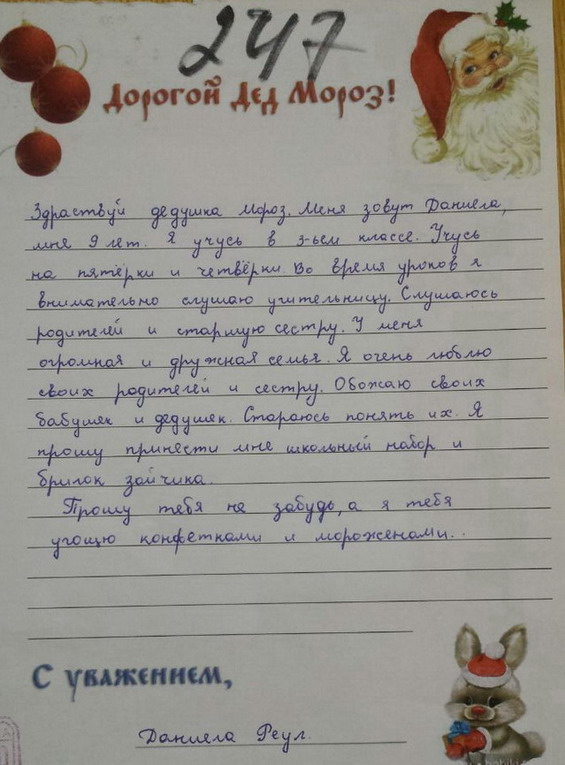 247
Дорогой Дед Мороз!
Здраствуй дедушка Мороз. Меня зовут Даниела,
мне 9 лет. Я учусь в 3-ьем классе. Учусь
на пятёрки и четвёрки. Во время уроков я
внимательно слушаю учительницу. Слушаюсь
родителей и старшую сестру. У меня
огромная и дружная семья. Я очень люблю
своих родителей и сестру. Обожаю своих
бабушек и дедушек. Стараюсь понять их. Я
прошу принести мне школьный набор и
брилок зайчика.
Прошу тебя не забудь, а я тебя
угощю конфетками и мороженами..
С уважением,
Даниела Реул.